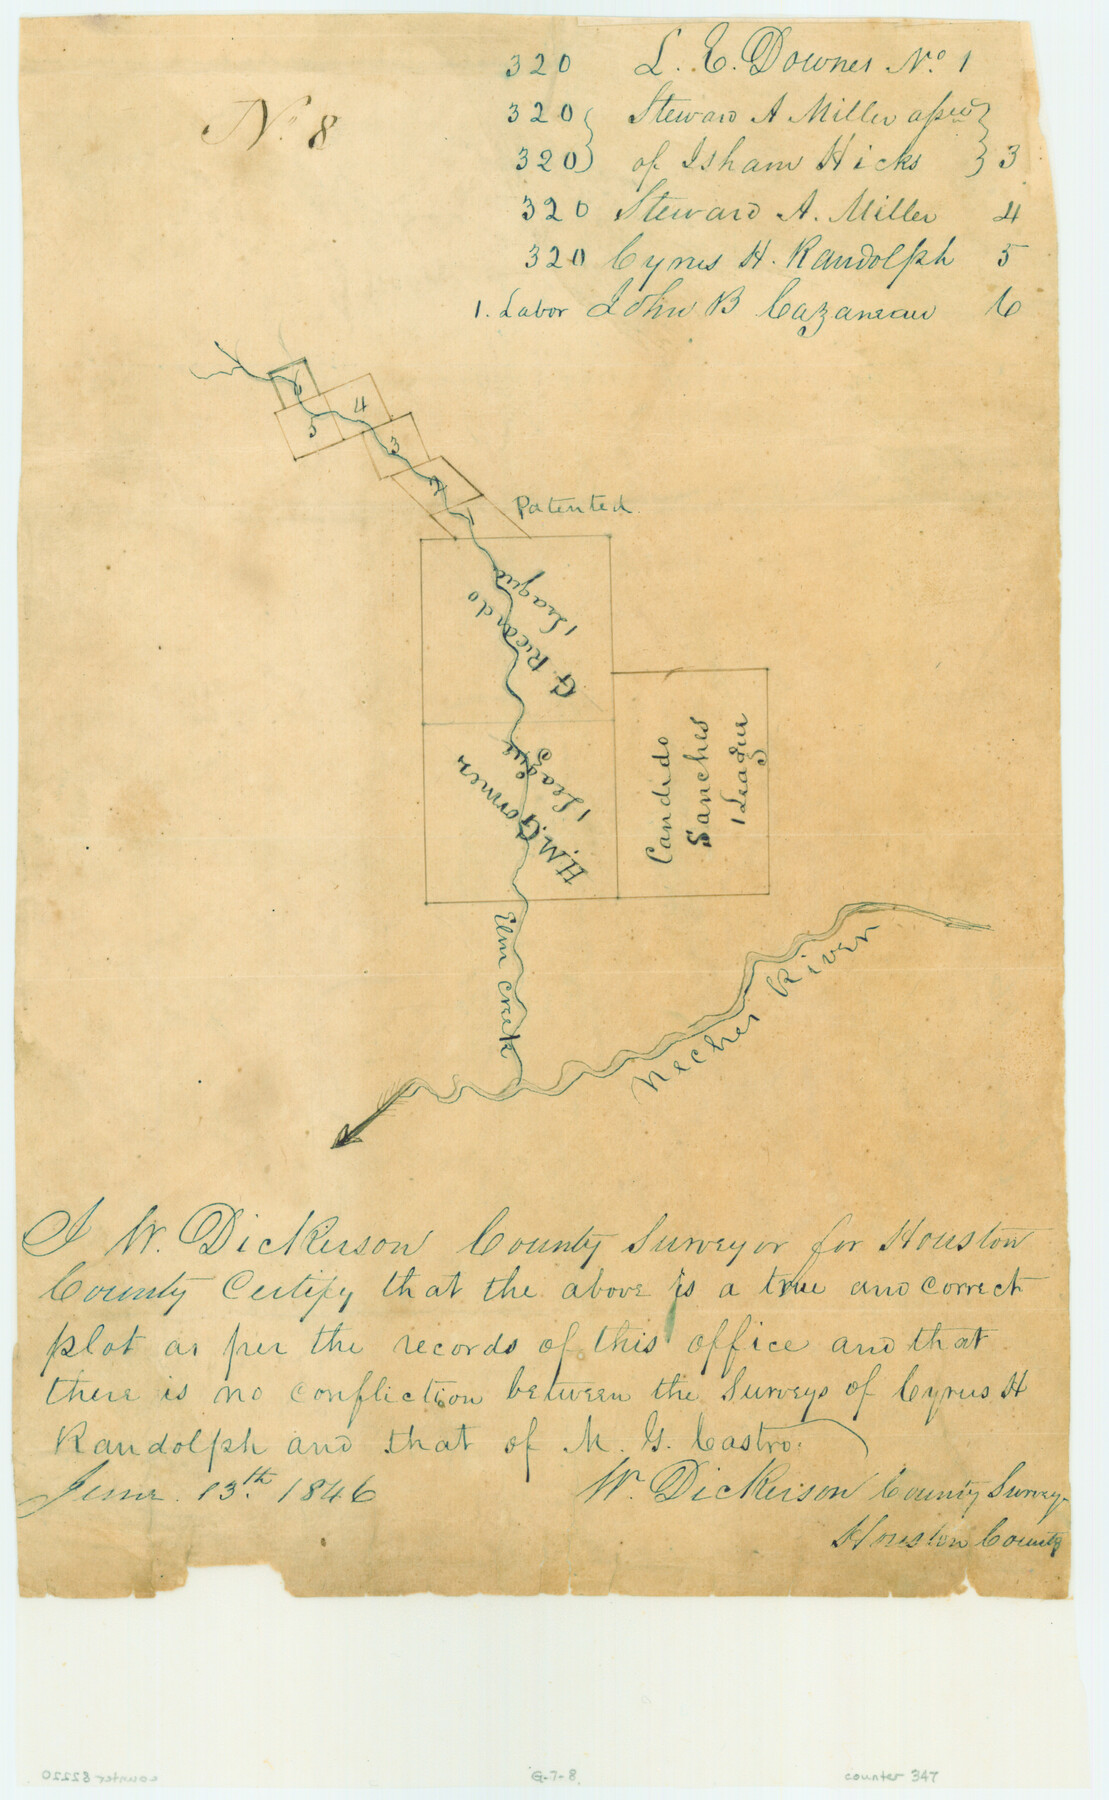 No 8
320 L. E. Downes No. 1
320 Steward A Miller assee
320 of Isham Hicks 3
320 Steward A. Miller 4
320 Cyrus H. Randolph 5
1. Labor John B Cazaneau 6
6
5
4
3
2
1
Patented
G. Ricardo
1 League
H.M.G. 
1 League
Candido
Sanches
1 League
Elm Creek
Neches River
I W. Dickerson County Surveyor for Houston
County Certify that the above is a true and correct
plot as per the records of this office and that
there is no confliction between the Surveys of Cyrus H
Randolph and that of M. G. Castro.
June. 13.th 1846
W. Dickerson County Survey
Houston County
counter 82220
G-7-8
counter 347